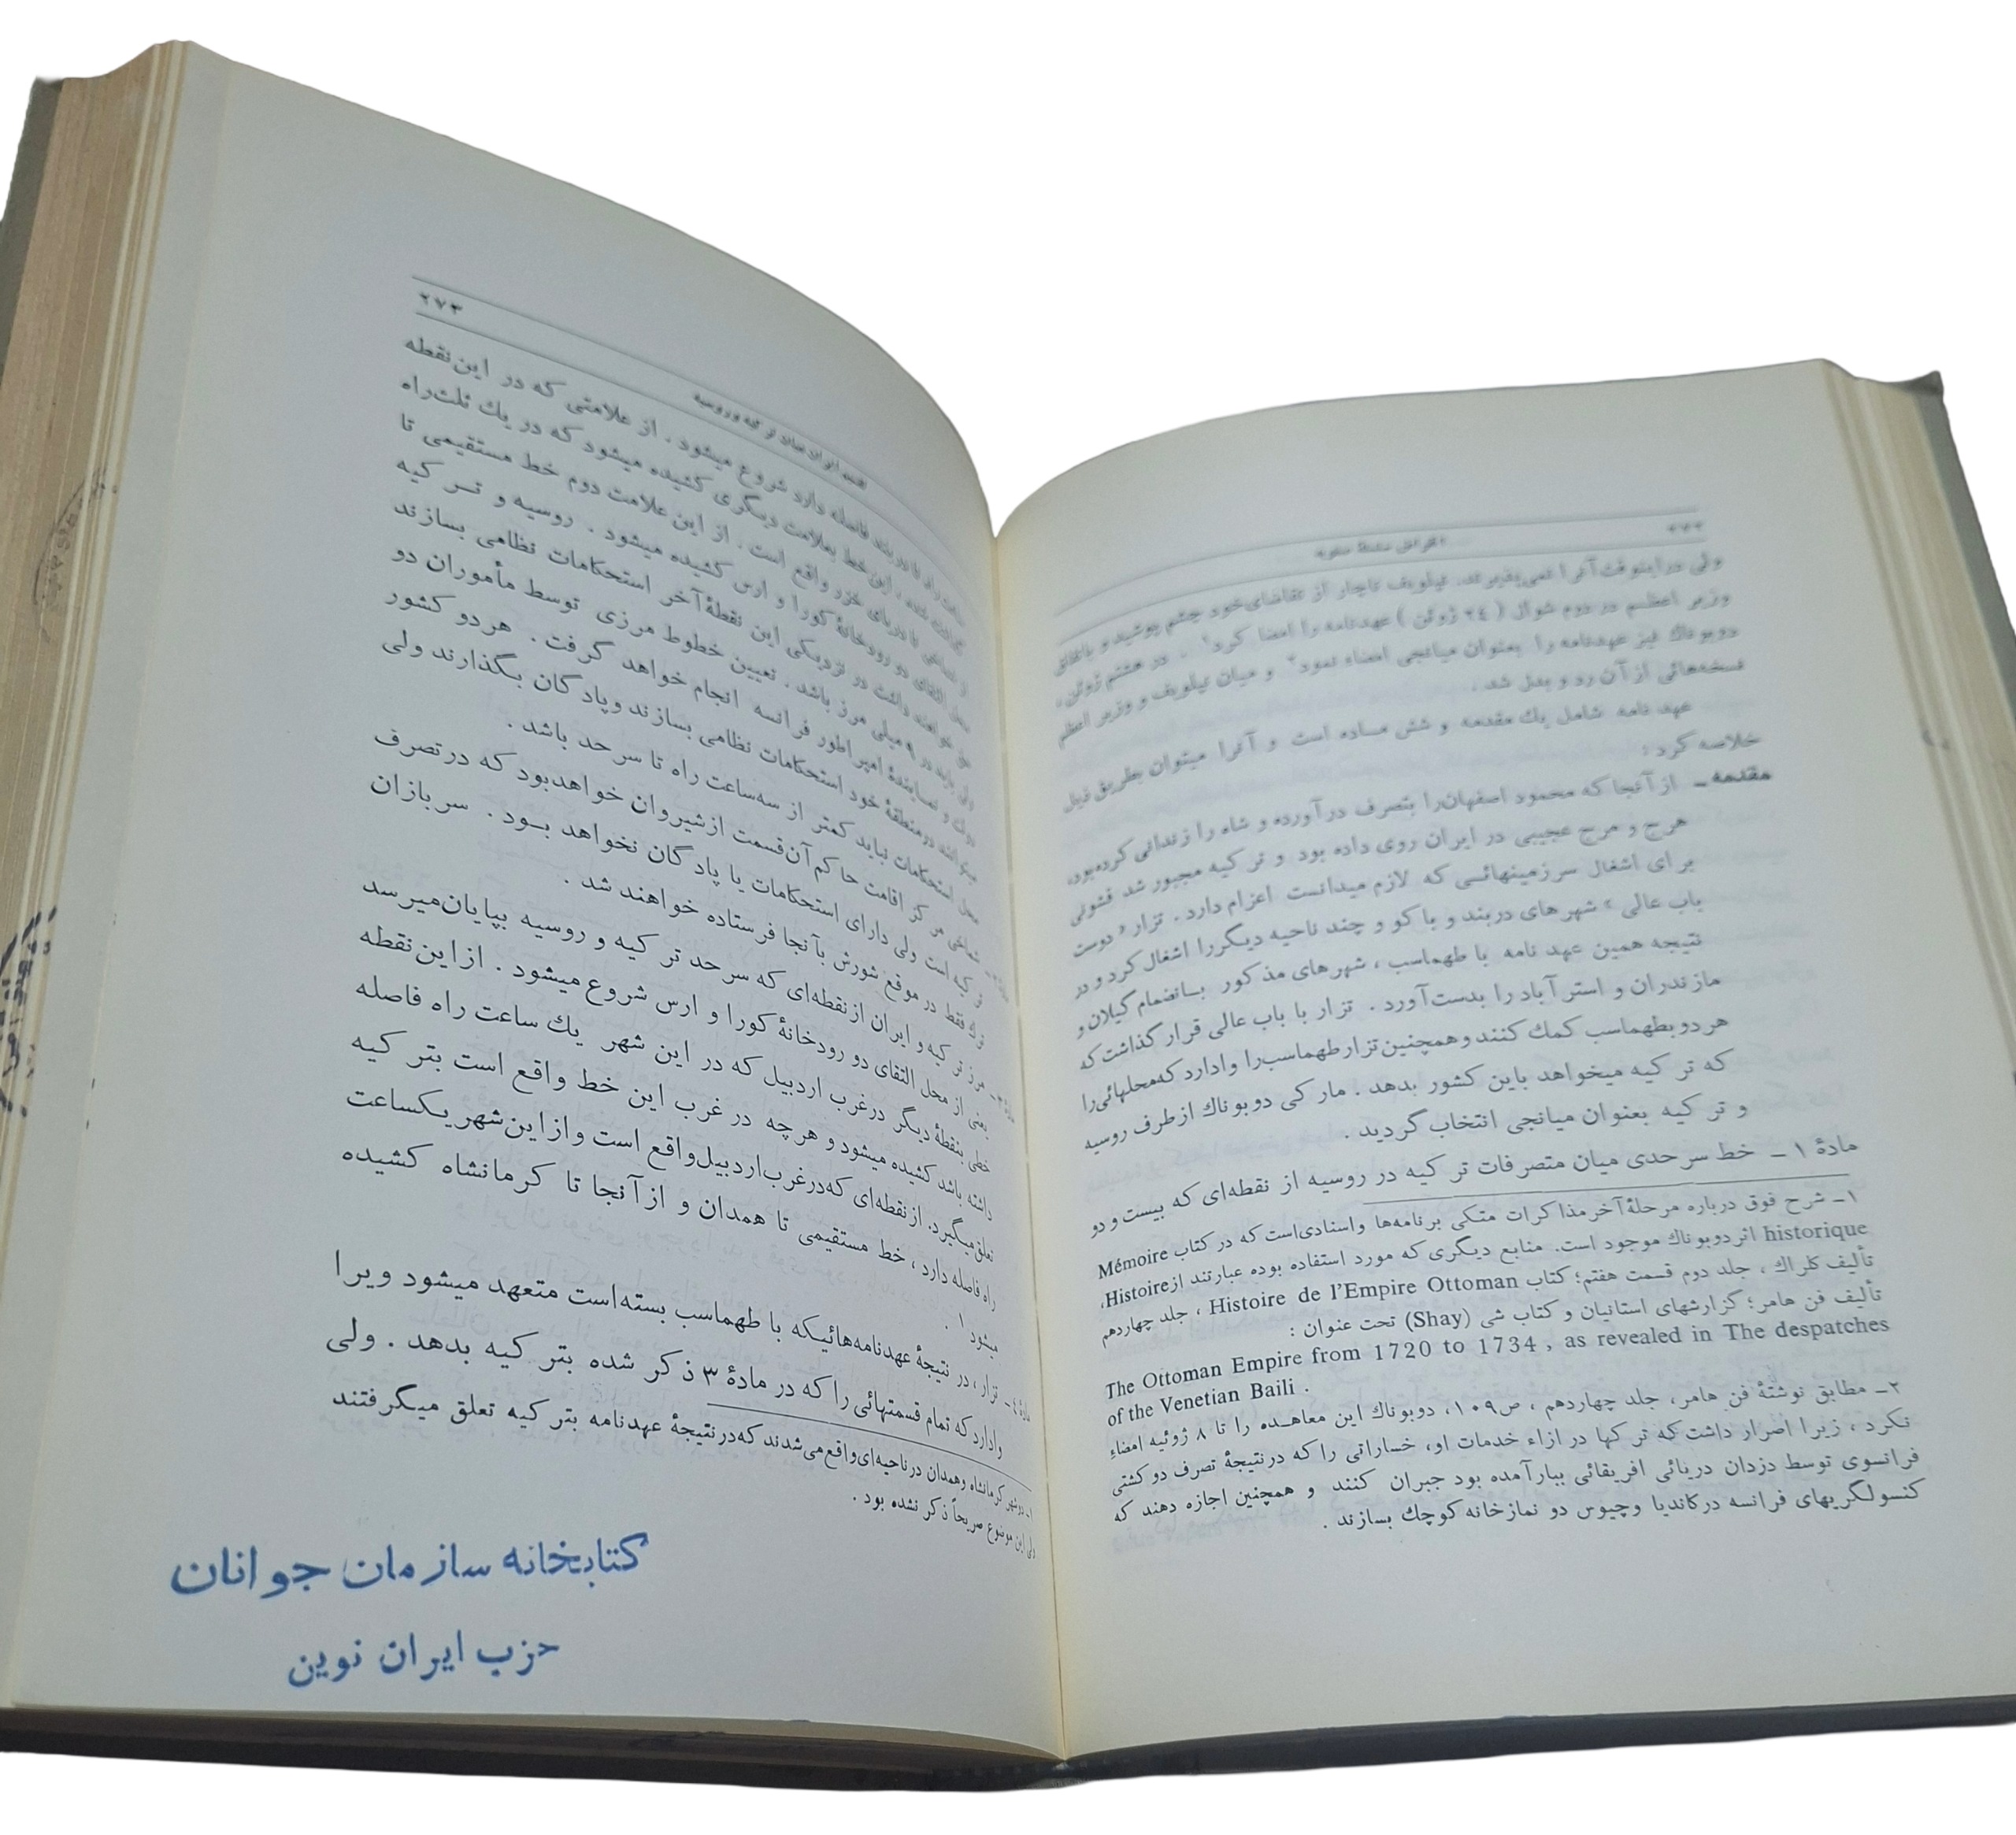 ۲۷۲
انقراض سلسلهٔ صفویه
ولی در اینوقت آنرا نمی‌پذیرند. نپلویف ناچار از تقاضای خود چشم پوشید و باتفاق
وزیر اعظم در دوم شوال ( ۲٤ ژوئن ) عهدنامه را امضا کرد۱ . در هشتم ژوئن ،
دوبوناك نیز عهدنامه را بعنوان میانجی امضاء نمود۲ و میان نپلویف و وزیر اعظم
نسخه‌هائی از آن رد و بدل شد .
عهد نامه شامل یك مقدمه و شش مـاده است و آنرا میتوان بطریق ذیل
خلاصه کرد :
مقدمه ـ از آنجا که محمود اصفهان‌را بتصرف در آورده و شاه را زندانی کرده‌بود،
هرج و مرج عجیبی در ایران روی داده بود و ترکیه مجبور شد قشونی
برای اشغال سرزمینهائـی که لازم میدانست اعزام دارد . تزار « دوست
باب عالی » شهرهای دربند و باکو و چند ناحیه دیگررا اشغال کرد و در
نتیجه همین عهد نامه با طهماسب ، شهرهای مذکور بـانضمام گیلان و
مازندران و استرآباد را بدست‌آورد . تزار با باب عالی قرار گذاشت که
هردو بطهماسب کمك کنند و همچنین تزار طهماسب‌را وادارد که‌محلهائی‌را
که ترکیه میخواهد باین کشور بدهد . مارکی دوبوناك ازطرف روسیه
و ترکیه بعنوان میانجی انتخاب گردید .
مادهٔ ۱ ـ خط سرحدی میان متصرفات ترکیه در روسیه از نقطه‌ای که بیست و دو
۱ـ شرح فوق درباره مرحلهٔ آخرمذاکرات متکی برنامه‌ها واسنادی‌است که در کتاب Mémoire
historique اثردوبوناك موجود است. منابع دیگری که مورد استفاده بوده عبارتند از Histoire،
تألیف کلراك ، جلد دوم قسمت هفتم؛ کتاب Histoire de l’Empire Ottoman ، جلد چهاردهم
تألیف فن هامر؛ گزارشهای استانیان و کتاب شی (Shay) تحت عنوان :
The Ottoman Empire from 1720 to 1734 , as revealed in The despatches
of the Venetian Baili .
۲ـ مطابق نوشتهٔ فن هامر، جلد چهاردهم ، ص۱۰۹، دوبوناك این معاهـده را تا ۸ ژوئیه امضاء
نکرد ، زیرا اصرار داشت که ترکها در ازاء خدمات او، خساراتی را که درنتیجهٔ تصرف دو کشتی
فرانسوی توسط دزدان دریائی افریقائی ببارآمده بود جبران کنند و همچنین اجازه دهند که
کنسولگریهای فرانسه درکاندیا وچیوس دو نمازخانه کوچك بسازند .
۲۷۳
تقسیم ایران میان ترکیه و روسیه
ساعت راه تا دربند فاصله دارد شروع میشود . از علامتی که در این‌نقطه
گذاشته شده ، این خط بعلامت دیگری کشیده میشود که در یك ثلث‌راه
از شماخی تا دریای خزر واقع است . از این علامت دوم خط مستقیمی تا
محل التقای دو رودخانهٔ کورا و ارس کشیده میشود . روسیه و تـرکیه
حق خواهند داشت در نزدیکی این نقطهٔ آخر استحکامات نظامی بسازند
ولی باید در ۹ میلی مرز باشد . تعیین خطوط مرزی توسط مأموران دو
دولت و نمـایندهٔ امپراطور فرانسه انجام خواهد گرفت . هردو کشور
میتوانند درمنطقهٔ خود استحکامات نظامی بسازند وپادگان بگذارند ولی
محل استحکامات نباید کمتر از سه‌ساعت راه تا سرحد باشد .
مادهٔ ۲ـ شماخی مرکز اقامت حاکم آن‌قسمت ازشیروان خواهدبود که درتصرف
ترکیه است ولی دارای استحکامات یا پادگان نخواهد بـود . سربازان
ترك فقط در موقع شورش بآنجا فرستاده خواهند شد .
مادهٔ ۳ـ مرز ترکیه و ایران ازنقطه‌ای که سرحد ترکیه و روسیه بپایان‌میرسد
یعنی از محل التقای دو رودخانهٔ کورا و ارس شروع میشود . ازاین‌نقطه
خطی بنقطهٔ دیگر درغرب اردبیل که در این شهر یك ساعت راه فاصله
داشته باشد کشیده میشود و هرچه در غرب این خط واقع است بترکیه
تعلق‌میگیرد. ازنقطه‌ای که‌درغرب‌اردبیل‌واقع است وازاین‌شهریکساعت
راه فاصله دارد ، خط مستقیمی تا همدان و از آنجا تا کرمانشاه کشیده
میشود ۱ .
مادهٔ ٤ـ تزار ، در نتیجهٔ عهدنامه‌هائیکه با طهماسب بسته‌است متعهد میشود ویرا
وادارد که تمام قسمتهائی را که در مادهٔ ۳ ذکر شده بترکیه بدهد . ولی
۱ـ دوشهر کرمانشاه وهمدان درناحیه‌ای‌واقع‌می‌شدند که‌درنتیجهٔ عهدنامه بترکیه تعلق میگرفتند
ولی این موضوع صریحاً ذکر نشده بود .
کتابخانه سازمان جوانان
حزب ایران نوین